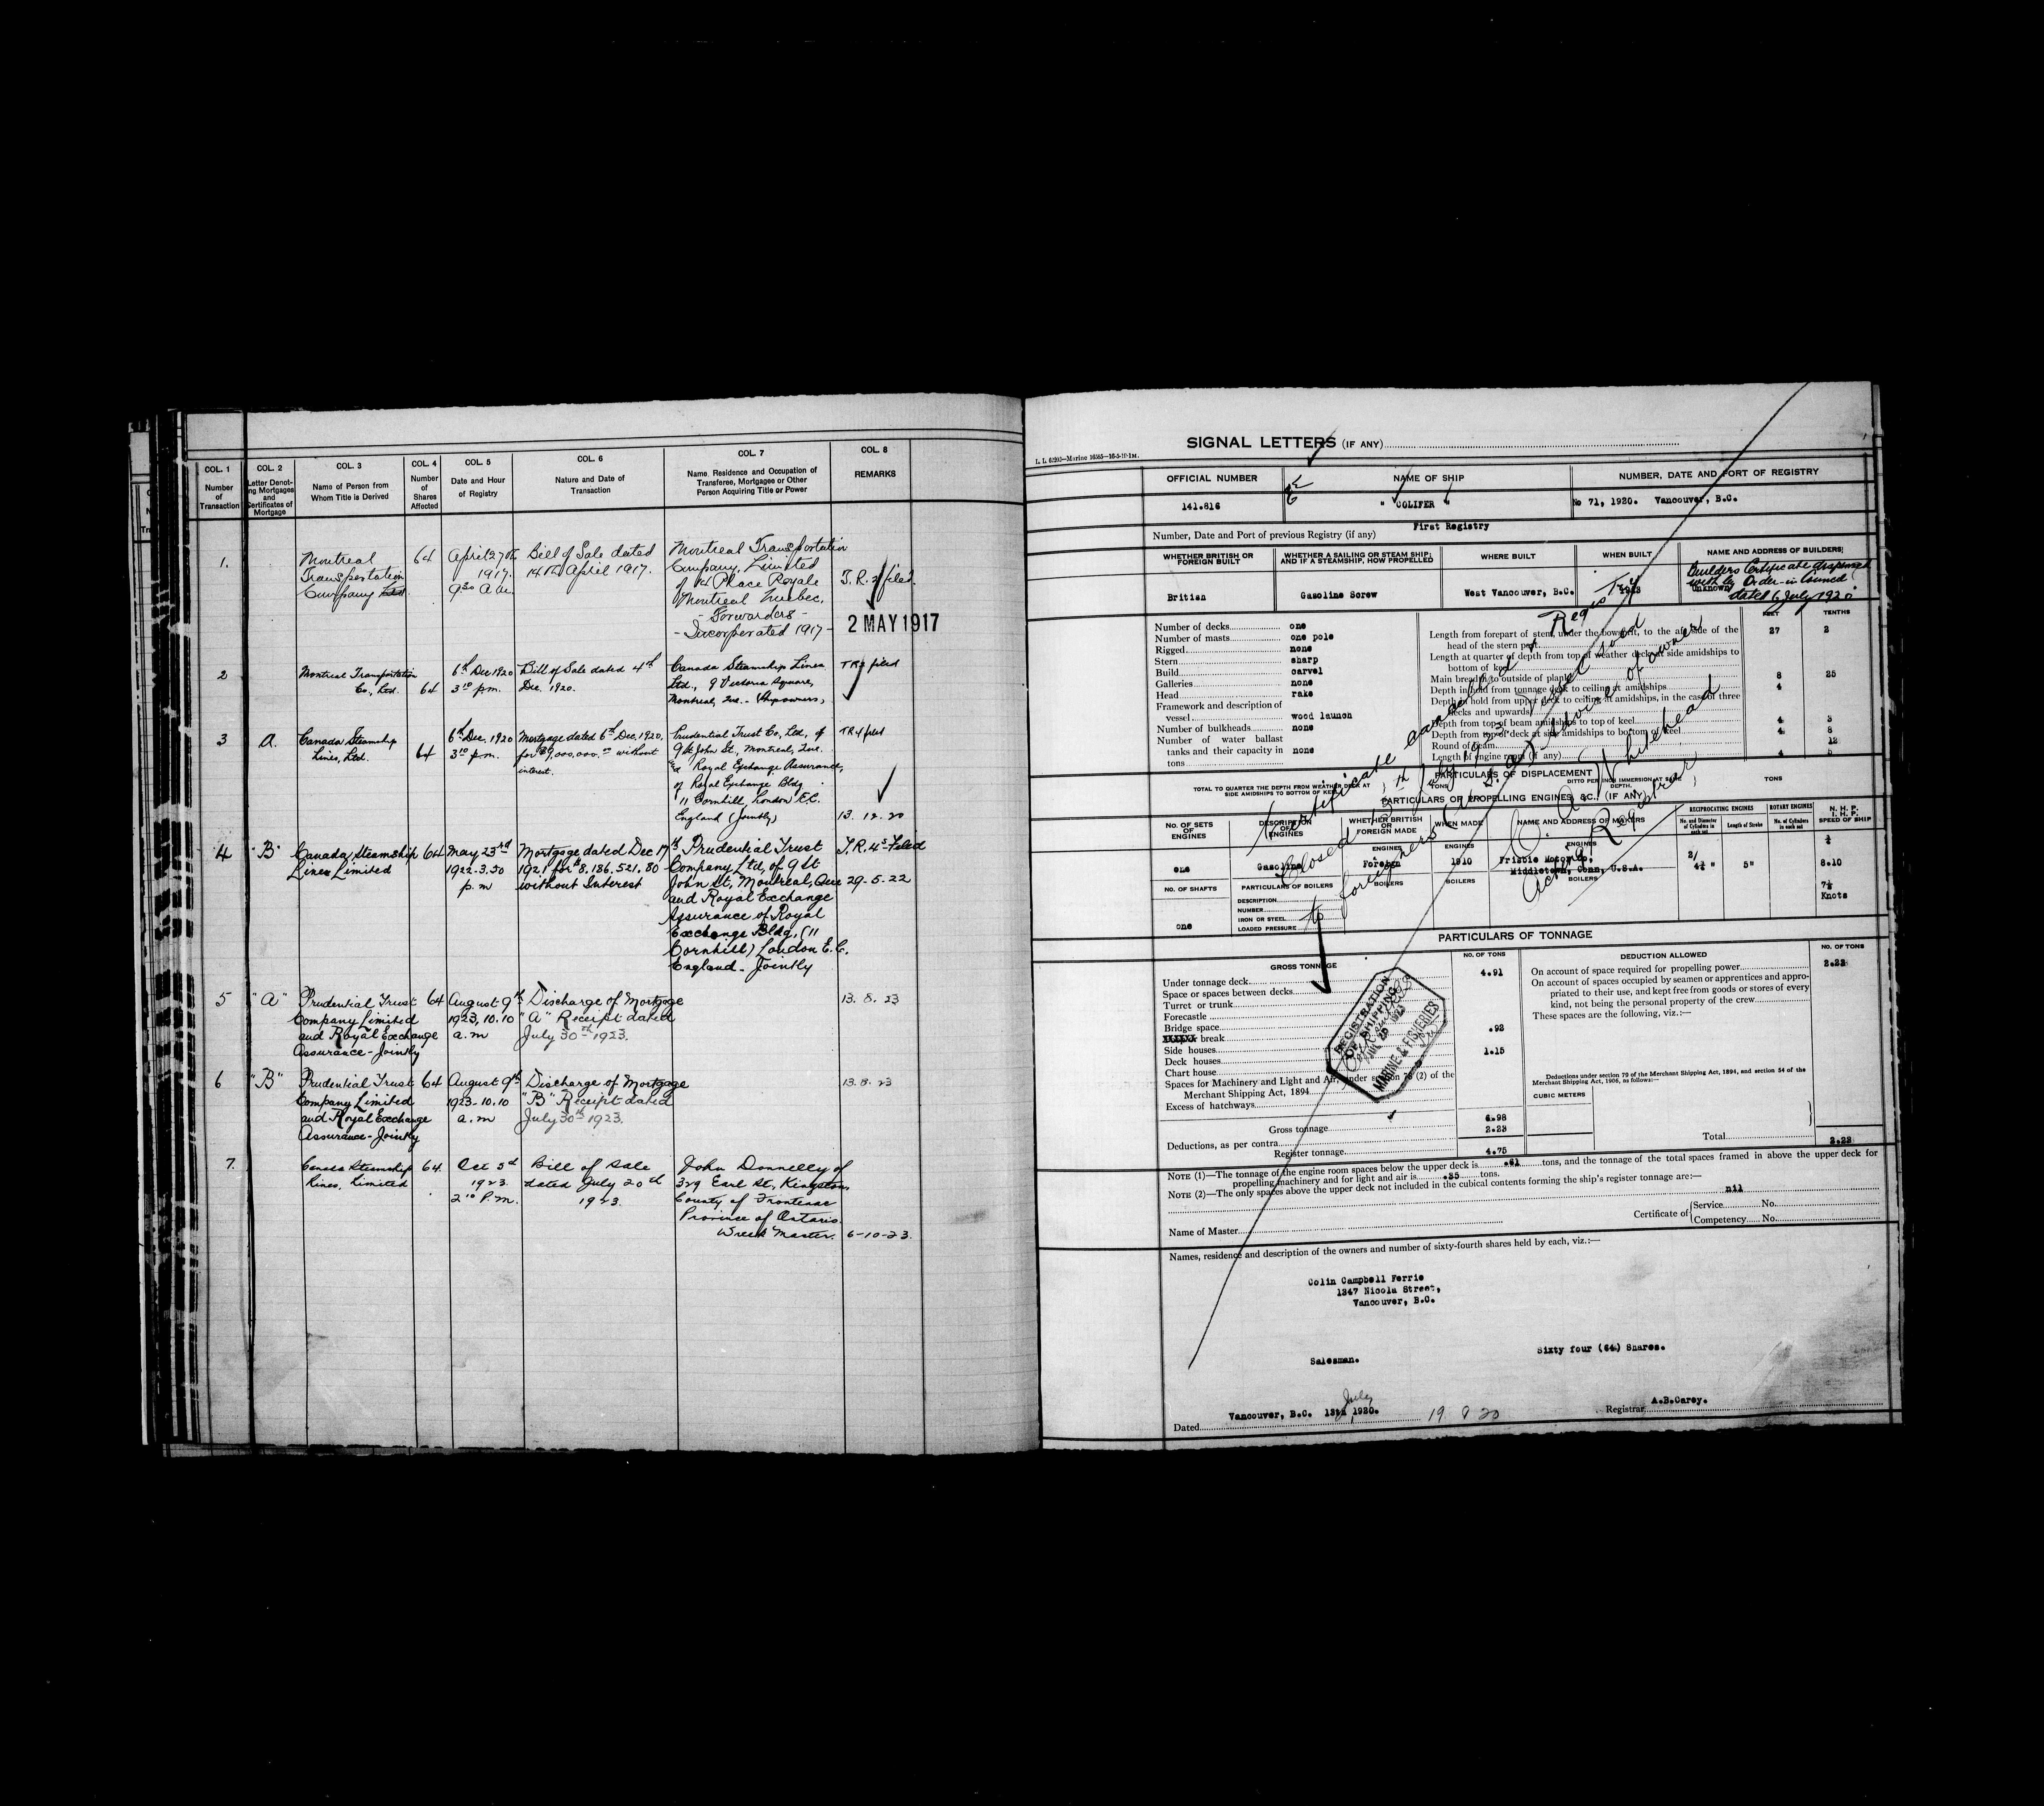 COL. 1
Number
of
Transaction
COL. 2
Letter Denot-
ing Mortgages
and
Certificates of
Mortgage
COL. 3
Name of Person from
Whom Title is Derived
COL. 4
Number
of
Shares
Affected
COL. 5
Date and Hour
of Registry
COL. 6
Nature and Date of
Transaction
COL. 7
Name, Residence and Occupation of
Transferee, Mortgagee or Other
Person Acquiring Title or Power
COL. 8
REMARKS
1.
Montreal
Transportation
Company Ltd
64
April 27th
1917.
9 30 a.m.
Bill of Sale dated
14th April 1917.
Montreal Transportation
Company, Limited
of 14 Place Royale
Montreal Quebec.
- Forwarders -
- Incorporated 1917 -
T.R. 2 filed.
2 MAY 1917
2
Montreal Transportation
Co., Ltd.
64
6th Dec 1920
3 10 p.m.
Bill of Sale dated 4th
Dec. 1920.
Canada Steamship Lines
Ltd., 9 Victoria Square,
Montreal, Que. - Shipowners,
TR filed
3
A.
Canada Steamship
Lines, Ltd.
64
6th Dec, 1920
3 10 p.m.
Mortgage dated 6th Dec, 1920,
for $9,000,000.00 without
interest.
Prudential Trust Co, Ltd., of
9 St John St., Montreal, Que.
and Royal Exchange Assurance,
of Royal Exchange Bldg
11 Cornhill, London E.C.
England (Jointly)
TR4 filed
13. 12. 20
4
"B"
Canada Steamship
Lines Limited
64
May 23rd
1922-3.30
p.m
Mortgage dated Dec 17th
1921 for $8,186,521.80
without Interest
Prudential Trust
Company Ltd, of 9 St
John St, Montreal, Que
and Royal Exchange
Assurance of Royal
Exchange Bldg, (11
Cornhill) London E.C.
England - Jointly
T.R. 4s Filed
29-5-22
5
"A"
Prudential Trust
Company Limited
and Royal Exchange
Assurance - Jointly
64
August 9th
1923, 10.10
a.m
Discharge of Mortgage
"A" Receipt dated
July 30th 1923.
13. 8. 23
6
"B"
Prudential Trust
Company Limited
and Royal Exchange
Assurance - Jointly
64
August 9th
1923-10.10
a.m
Discharge of Mortgage
"B" Receipt dated
July 30th 1923.
13. 8. 23
7.
Canada Steamship
Lines, Limited
64.
Oct 3rd
1923.
2 10 P.M.
Bill of Sale
dated July 20th
1923.
John Donnelly of
329 Earl St, Kingston
County of Frontenac
Province of Ontario.
Wreck Master.
6-10-23.
SIGNAL LETTERS (IF ANY)
OFFICIAL NUMBER
141.816
NAME OF SHIP
" COLIFER "
NUMBER, DATE AND PORT OF REGISTRY
No 71, 1920. Vancouver, B.C.
Number, Date and Port of previous Registry (if any) First Registry
WHETHER BRITISH OR
FOREIGN BUILT
British
WHETHER A SAILING OR STEAM SHIP;
AND IF A STEAMSHIP, HOW PROPELLED
Gasoline Screw
WHERE BUILT
West Vancouver, B.C.
WHEN BUILT
NAME AND ADDRESS OF BUILDERS;
Builders Certificate dispensed
with by Order-in Council
Unknown
dated 6 July 1920
FEET
TENTHS
Number of decks one
Number of masts one pole
Rigged none
Stern sharp
Build carvel
Galleries none
Head rake
Framework and description of
vessel wood launch
Number of bulkheads none
Number of water ballast
tanks and their capacity in none
tons
Length from forepart of stem, under the bowsprit, to the aft side of the
head of the stern post 27 2
Length at quarter of depth from top of weather deck at side amidships to
bottom of keel
Main breadth to outside of plank 8 25
Depth in hold from tonnage deck to ceiling at amidships 4
Depth in hold from upper deck to ceiling at amidships, in the case of three
decks and upwards
Depth from top of beam amidships to top of keel 4 3
Depth from top of deck at side amidships to bottom of keel 4 8
Round of beam 12
Length of engine room (if any) 4 5
PARTICULARS OF DISPLACEMENT
TOTAL TO QUARTER THE DEPTH FROM WEATHER DECK AT
SIDE AMIDSHIPS TO BOTTOM OF KEEL
TONS
DITTO PER INCH IMMERSION AT SAME
DEPTH.
TONS
PARTICULARS OF PROPELLING ENGINES, &C. (IF ANY)
NO. OF SETS
OF
ENGINES
one
NO. OF SHAFTS
one
DESCRIPTION
OF
ENGINES
Gasoline
PARTICULARS OF BOILERS
DESCRIPTION
NUMBER
IRON OR STEEL
LOADED PRESSURE
WHETHER BRITISH
OR
FOREIGN MADE
ENGINES
Foreign
BOILERS
WHEN MADE
ENGINES
1910
BOILERS
NAME AND ADDRESS OF MAKERS
ENGINES
Frisbie Motor Co,
Middletown, Conn, U.S.A.
BOILERS
RECIPROCATING ENGINES
No. and Diameter
of Cylinders in
each set
Length of Stroke
5"
ROTARY ENGINES
No. of Cylinders
in each set
N. H. P.
I. H. P.
SPEED OF SHIP
8.10
7½
Knots
Certificate cancelled &
Registry
closed 5th July 1923. Vessel sold
to foreigners (U.S.A.) Advice of owner
O. A. Whitehead
Acting Registrar,
PARTICULARS OF TONNAGE
GROSS TONNAGE
NO. OF TONS
Under tonnage deck 4.91
Space or spaces between decks
Turret or trunk
Forecastle
Bridge space .92
break
Side houses 1.15
Deck houses
Chart house
Spaces for Machinery and Light and Air, under section 78 (2) of the
Merchant Shipping Act, 1894
Excess of hatchways
Gross tonnage 6.98
Deductions, as per contra 2.23
Register tonnage 4.75
REGISTRATION
OF SHIPPING
MARINE & FISHERIES
DEDUCTION ALLOWED
NO. OF TONS
On account of space required for propelling power 2.23
On account of spaces occupied by seamen or apprentices and appro-
priated to their use, and kept free from goods or stores of every
kind, not being the personal property of the crew
These spaces are the following, viz.:—
Deductions under section 79 of the Merchant Shipping Act, 1894, and section 54 of the
Merchant Shipping Act, 1906, as follows:—
CUBIC METERS
Total 2.23
NOTE (1)—The tonnage of the engine room spaces below the upper deck is .61 tons, and the tonnage of the total spaces framed in above the upper deck for
propelling machinery and for light and air is .25 tons.
NOTE (2)—The only spaces above the upper deck not included in the cubical contents forming the ship's register tonnage are:—
nil
Name of Master
Certificate of
Service No.
Competency No.
Names, residence and description of the owners and number of sixty-fourth shares held by each, viz.:—
Colin Campbell Ferrie
1347 Nicola Street,
Vancouver, B.C.
Salesman.
Sixty four (64) Shares.
Dated Vancouver, B.C. 13th July 1920. 19 8 20
Registrar A.B.Carey.